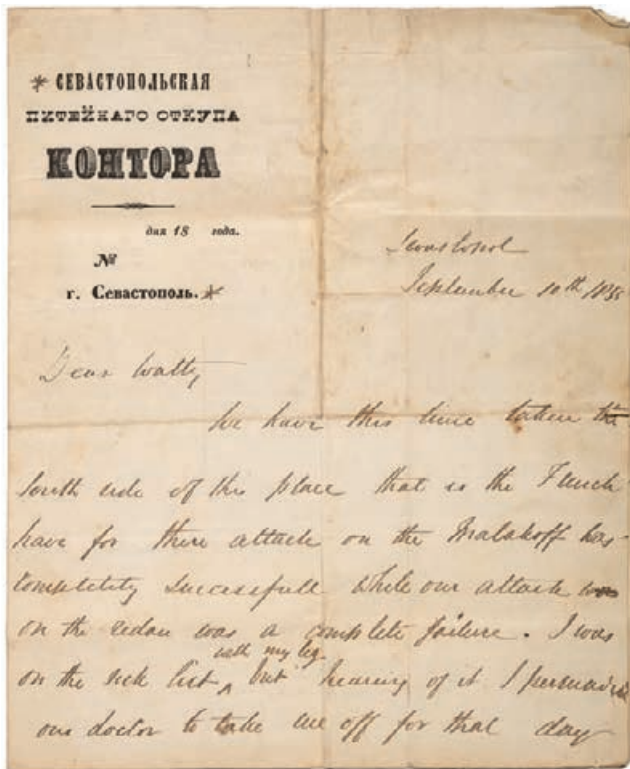 * СЕВАСТОПОЛЬСКАЯ
ПИТЕЙНАГО ОТКУПА
КОНТОРА
дня 18 года.
№
г. Севастополь. *
Sevastopol
September 10th 1855
Dear Watty
We have this time taken the
South side of this place that is the French
have for there attack on the Malakoff has
completely successfull while our attack was
on the redan was a complete failure. I was
with my leg
on the sick list ^ but hearing of it I persuaded
our doctor to take me off for that day